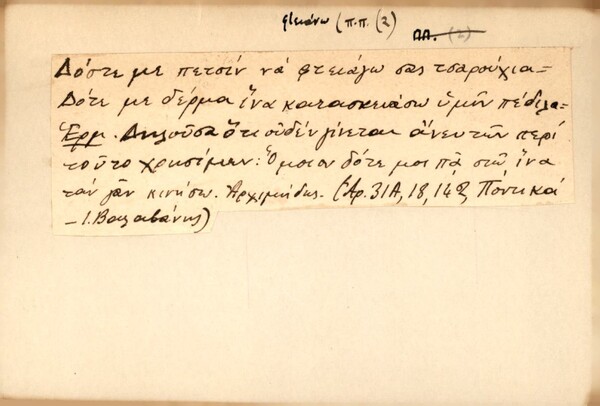 φτειάνω (π.π. (2)
ΠΠ. (2)
Δόστε με πετσὶν νά φτειάγω σας τσαρούχια=
Δότε με δέρμα ἵνα κατασκευάσω ὑμῖν πέδιλα=
Ἑρμ. Δηλοῦσα ὅτι οὐδέν γίνεται ἄνευ τῶν περί
τοῦτο χρησίμων: Ὅμοιον δότε μοι πᾶ στῶ ἵνα
τάν γᾶν κινήσω. Ἀρχιμήδης. (Ἀρ. 31Α, 18, 148, Ποντικά
- Ι. Βαλαβάνης)